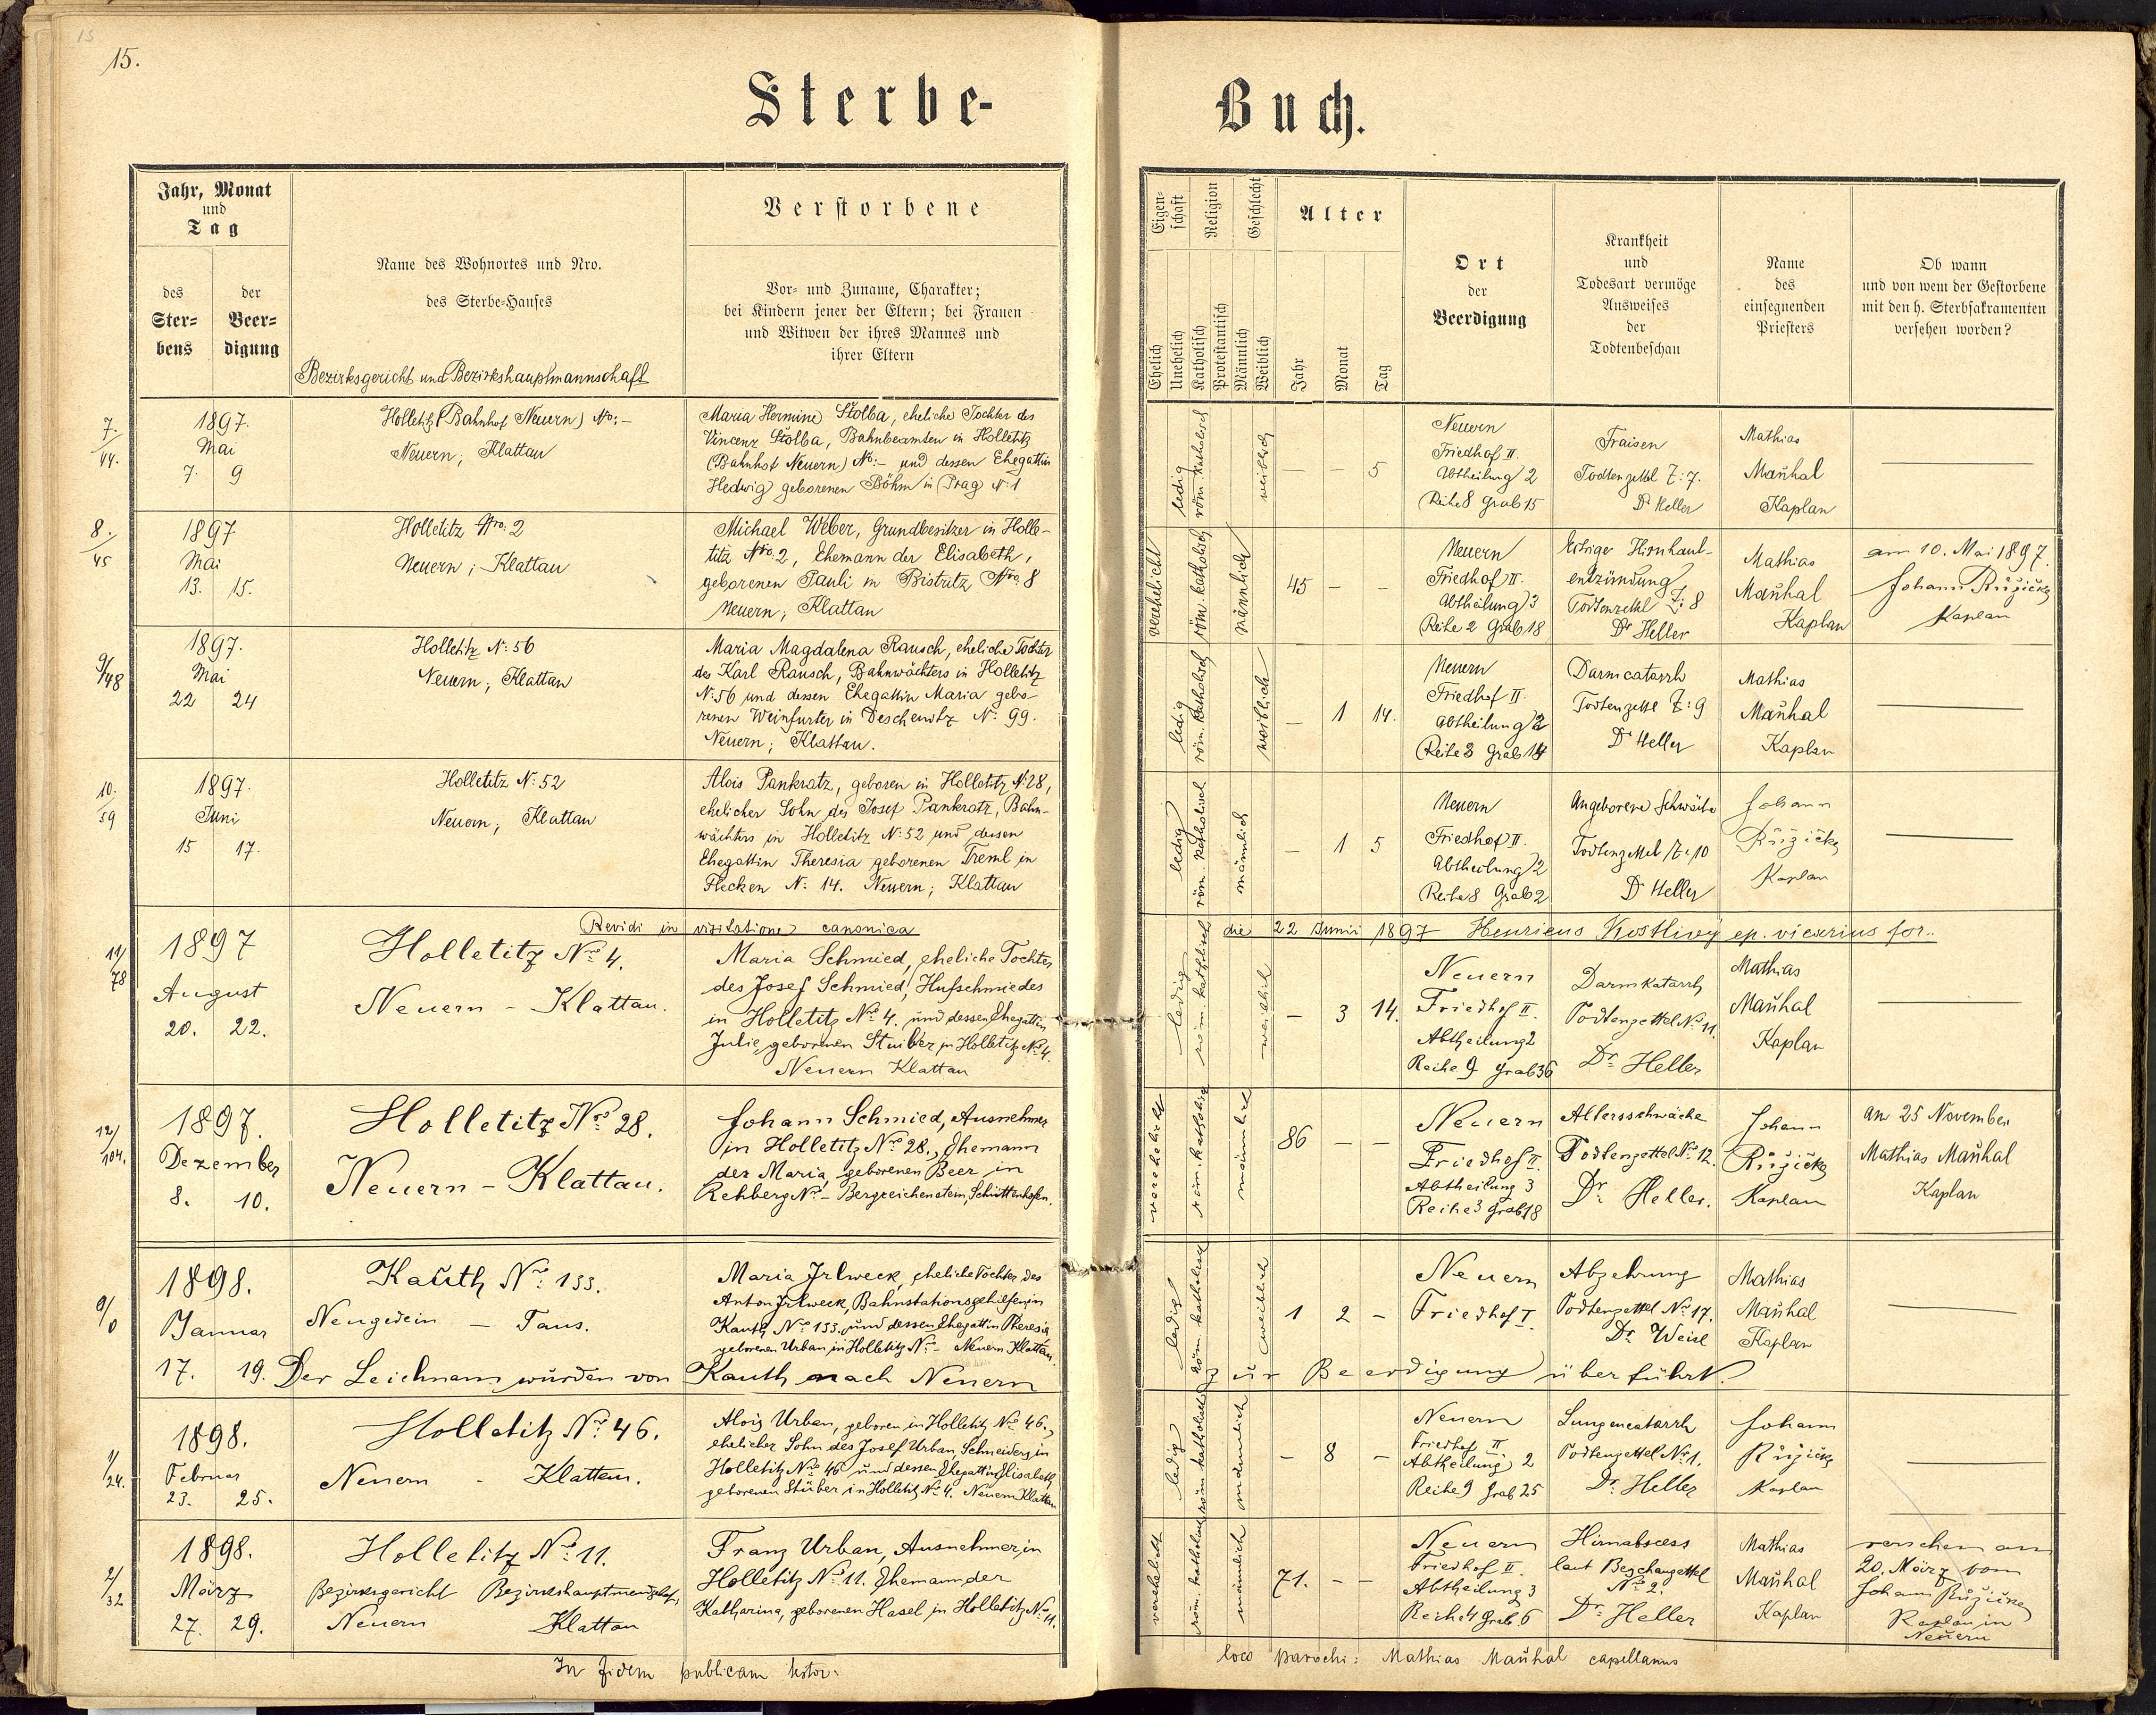 15
15.
Sterbe-
Buch.
Jahr, Monat
und
Tag
des
Ster=
bens
der
Beer=
digung
Name des Wohnortes und Nro.
des Sterbe-Hauses
Bezirksgericht und Bezirkshauptmannschaft
Verstorbene
Vor- und Zuname, Charakter;
bei Kindern jener der Eltern; bei Frauen
und Witwen der ihres Mannes und
ihrer Eltern
Eigen-
schaft
Religion
Geschlecht
Ehelich
Unehelich
Katholisch
Protestantisch
Männlich
Weiblich
Alter
Jahr
Monat
Tag
Ort
der
Beerdigung
Krankheit
und
Todesart vermöge
Ausweises
der
Todtenbeschau
Name
des
einsegnenden
Priesters
Ob wann
und von wem der Gestorbene
mit den h. Sterbsakramenten
versehen worden?
7./44.
1897.
Mai
7. 9
Holletitz (Bahnhof Neuern) No: –
Neuern; Klattau
Maria Hermine Stolba, eheliche Tochter des
Vincenz Stolba, Bahnbeamten in Holletitz
(Bahnhof Neuern) No: – und dessen Ehegattin
Hedwig geborenen Böhm in Prag N: 1
ledig
röm. katholisch
weiblich
– – 5
Neuern
Friedhof II.
Abtheilung 2
Reihe 8 Grab 15
Fraisen
Todtenzettel Z: 7.
Dr Heller
Mathias
Maňhal
Kaplan
8./45
1897
Mai
13. 15.
Holletitz Nro: 2
Neuern; Klattau
Michael Weber, Grundbesitzer in Holle-
titz Nro. 2, Ehemann der Elisabeth,
geborenen Pauli in Bistritz Nro. 8
Neuern; Klattau
verehelicht
röm. katholisch
männlich
45 – –
Neuern
Friedhof II.
Abtheilung 3
Reihe 2 Grab 18
Hirnhaut-
entzündung
Todtenzettel Z: 8
Dr Heller
Mathias
Maňhal
Kaplan
am 10. Mai 1897.
Johann Růžička
Kaplan
9/48
1897.
Mai
22 24
Holletitz N: 56
Neuern; Klattau
Maria Magdalena Rausch, eheliche Tochter
des Karl Rausch, Bahnwächters in Holletitz
N: 56 und dessen Ehegattin Maria gebo-
renen Weinfurter in Deschenitz N: 99.
Neuern; Klattau.
ledig
röm. katholisch
weiblich
– 1 14.
Neuern
Friedhof II.
Abtheilung 2
Reihe 3 Grab 14
Darmcatarrh
Todtenzettel Z: 9
Dr Heller
Mathias
Maňhal
Kaplan
10./59
1897.
Juni
15 17.
Holletitz N: 52
Neuern; Klattau
Alois Pankratz, geboren in Holletitz N: 28,
ehelicher Sohn des Josef Pankratz, Bahn-
wächters in Holletitz N: 52 und dessen
Ehegattin Theresia geborenen Treml in
Flecken N: 14. Neuern; Klattau
ledig
röm. katholisch
männlich
– 1 5
Neuern
Friedhof II.
Abtheilung 2
Reihe 8 Grab 2
Angeborene Schwäche
Todtenzettel Z: 10
Dr Heller
Johann
Růžička
Kaplan
Revidi in visitatione canonica die 22 Junii 1897 Henricus Kostlivý ep. vicarius for..
11/78
1897
August
20. 22.
Holletitz Nro 4.
Neuern – Klattau.
Maria Schmied, eheliche Tochter
des Josef Schmied, Hufschmiedes
in Holletitz Nro 4. und dessen Ehegattin
Julie, geborenen Stuiber in Holletitz Nro 4.
Neuern Klattau
ledig
röm. katholisch
weiblich
– 3 14.
Neuern
Friedhof II.
Abtheilung 2
Reihe 9 Grab 36
Darmkatarrh
Todtenzettel No 11.
Dr Heller
Mathias
Maňhal
Kaplan
12/104.
1897.
Dezember
8. 10.
Holletitz Nro 28.
Neuern – Klattau.
Johann Schmied, Ausnehmer
in Holletitz Nro 28., Ehemann
der Maria, geborenen Beer in
Rehberg Nro – Bergreichenstein, Schüttenhofen.
verehelicht
röm. katholisch
männlich
86 – –
Neuern
Friedhof II.
Abtheilung 3
Reihe 3 Grab 18
Altersschwäche
Todtenzettel No 12.
Dr Heller.
Johann
Růžička
Kaplan
am 25 November
Mathias Maňhal
Kaplan
0/0
1898.
Januar
17. 19.
Kauth Nro 133.
Neugedein – Taus.
Maria Irlweck, eheliche Tochter des
Anton Irlweck, Bahnstationsgehilfen in
Kauth Nro 133. und dessen Ehegattin Theresia
geborenen Urban in Holletitz Nro – Neuern Klattau.
ledig
röm. katholisch
weiblich
1 2 –
Neuern
Friedhof I.
Abzehrung
Todtenzettel No 17.
Dr. Weisl
Mathias
Maňhal
Kaplan
Der Leichnam wurden von Kauth nach Neuern zur Beerdigung überführt.
1/24.
1898.
Februar
23. 25.
Holletitz Nro 46.
Neuern – Klattau.
Alois Urban, geboren in Holletitz Nro 46.,
ehelicher Sohn des Josef Urban, Schneiders in
Holletitz Nro 46 und dessen Ehegattin Elisabeth,
geborenen Stüber in Holletitz No 4. Neuern Klattau
ledig
röm katholisch
männlich
– 8 –
Neuern
Friedhof II.
Abtheilung 2
Reihe 9 Grab 25
Lungencatarrh
Todtenzettel No 1.
Dr. Heller
Johann
Růžička
Kaplan
2/32
1898.
März
27. 29.
Holletitz Nro 11.
Bezirksgericht Bezirkshauptmannschaft,
Neuern Klattau
Franz Urban, Ausnehmer in
Holletitz Nro 11. Ehemann der
Katharina, geborenen Hasel in Holletitz Nro 11.
verehelicht
röm. katholisch
männlich
71. – –
Neuern
Friedhof II.
Abtheilung 3
Reihe 4 Grab 6
Hirnabscess
laut Beschauzettel
No 2.
Dr. Heller
Mathias
Maňhal
Kaplan
versehen am
20. März vom
Johann Růžička
Kaplan in
Neuern
In fidem publicam testor:
loco parochi: Mathias Maňhal capellanus